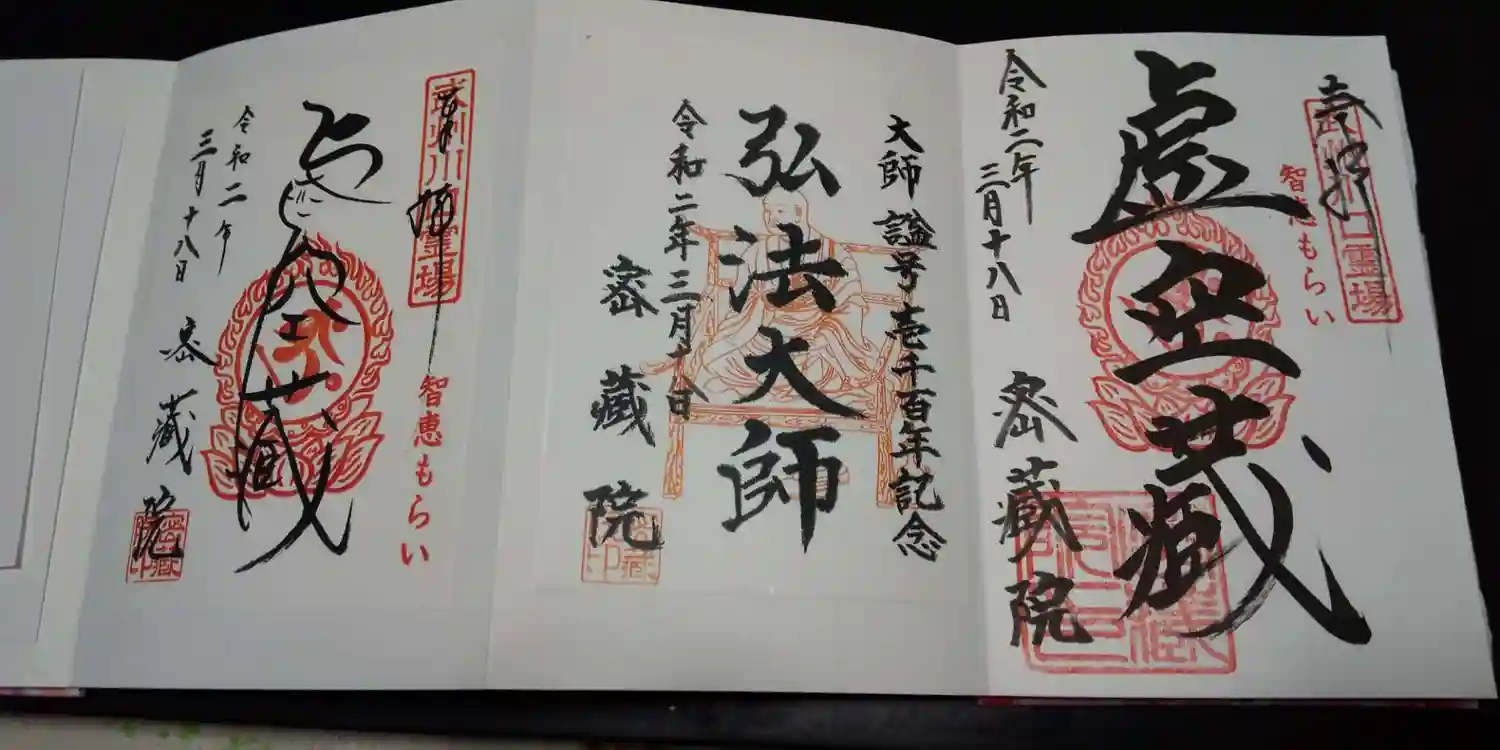 奉拝
武州川口霊場
智恵もらい
虚空蔵
令和二年
三月十八日
密蔵院
大師諡号壱千百年記念
弘法大師
令和二年三月十八日
密蔵院
奉拝
武州川口霊場
智恵もらい
虚空蔵
令和二年
三月十八日
密蔵院